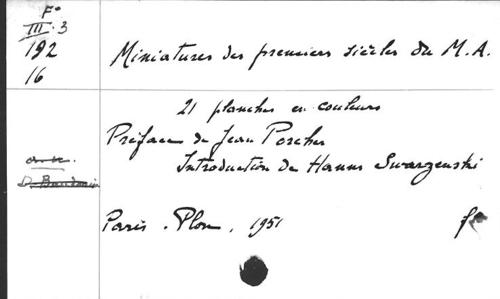 F°
III.3
192
16
Miniatures des premiers siècles du M.A.
21 planches en couleurs
Préface de Jean Porcher
Introduction de Hanns Swarzenski
Paris. Plon, 1951